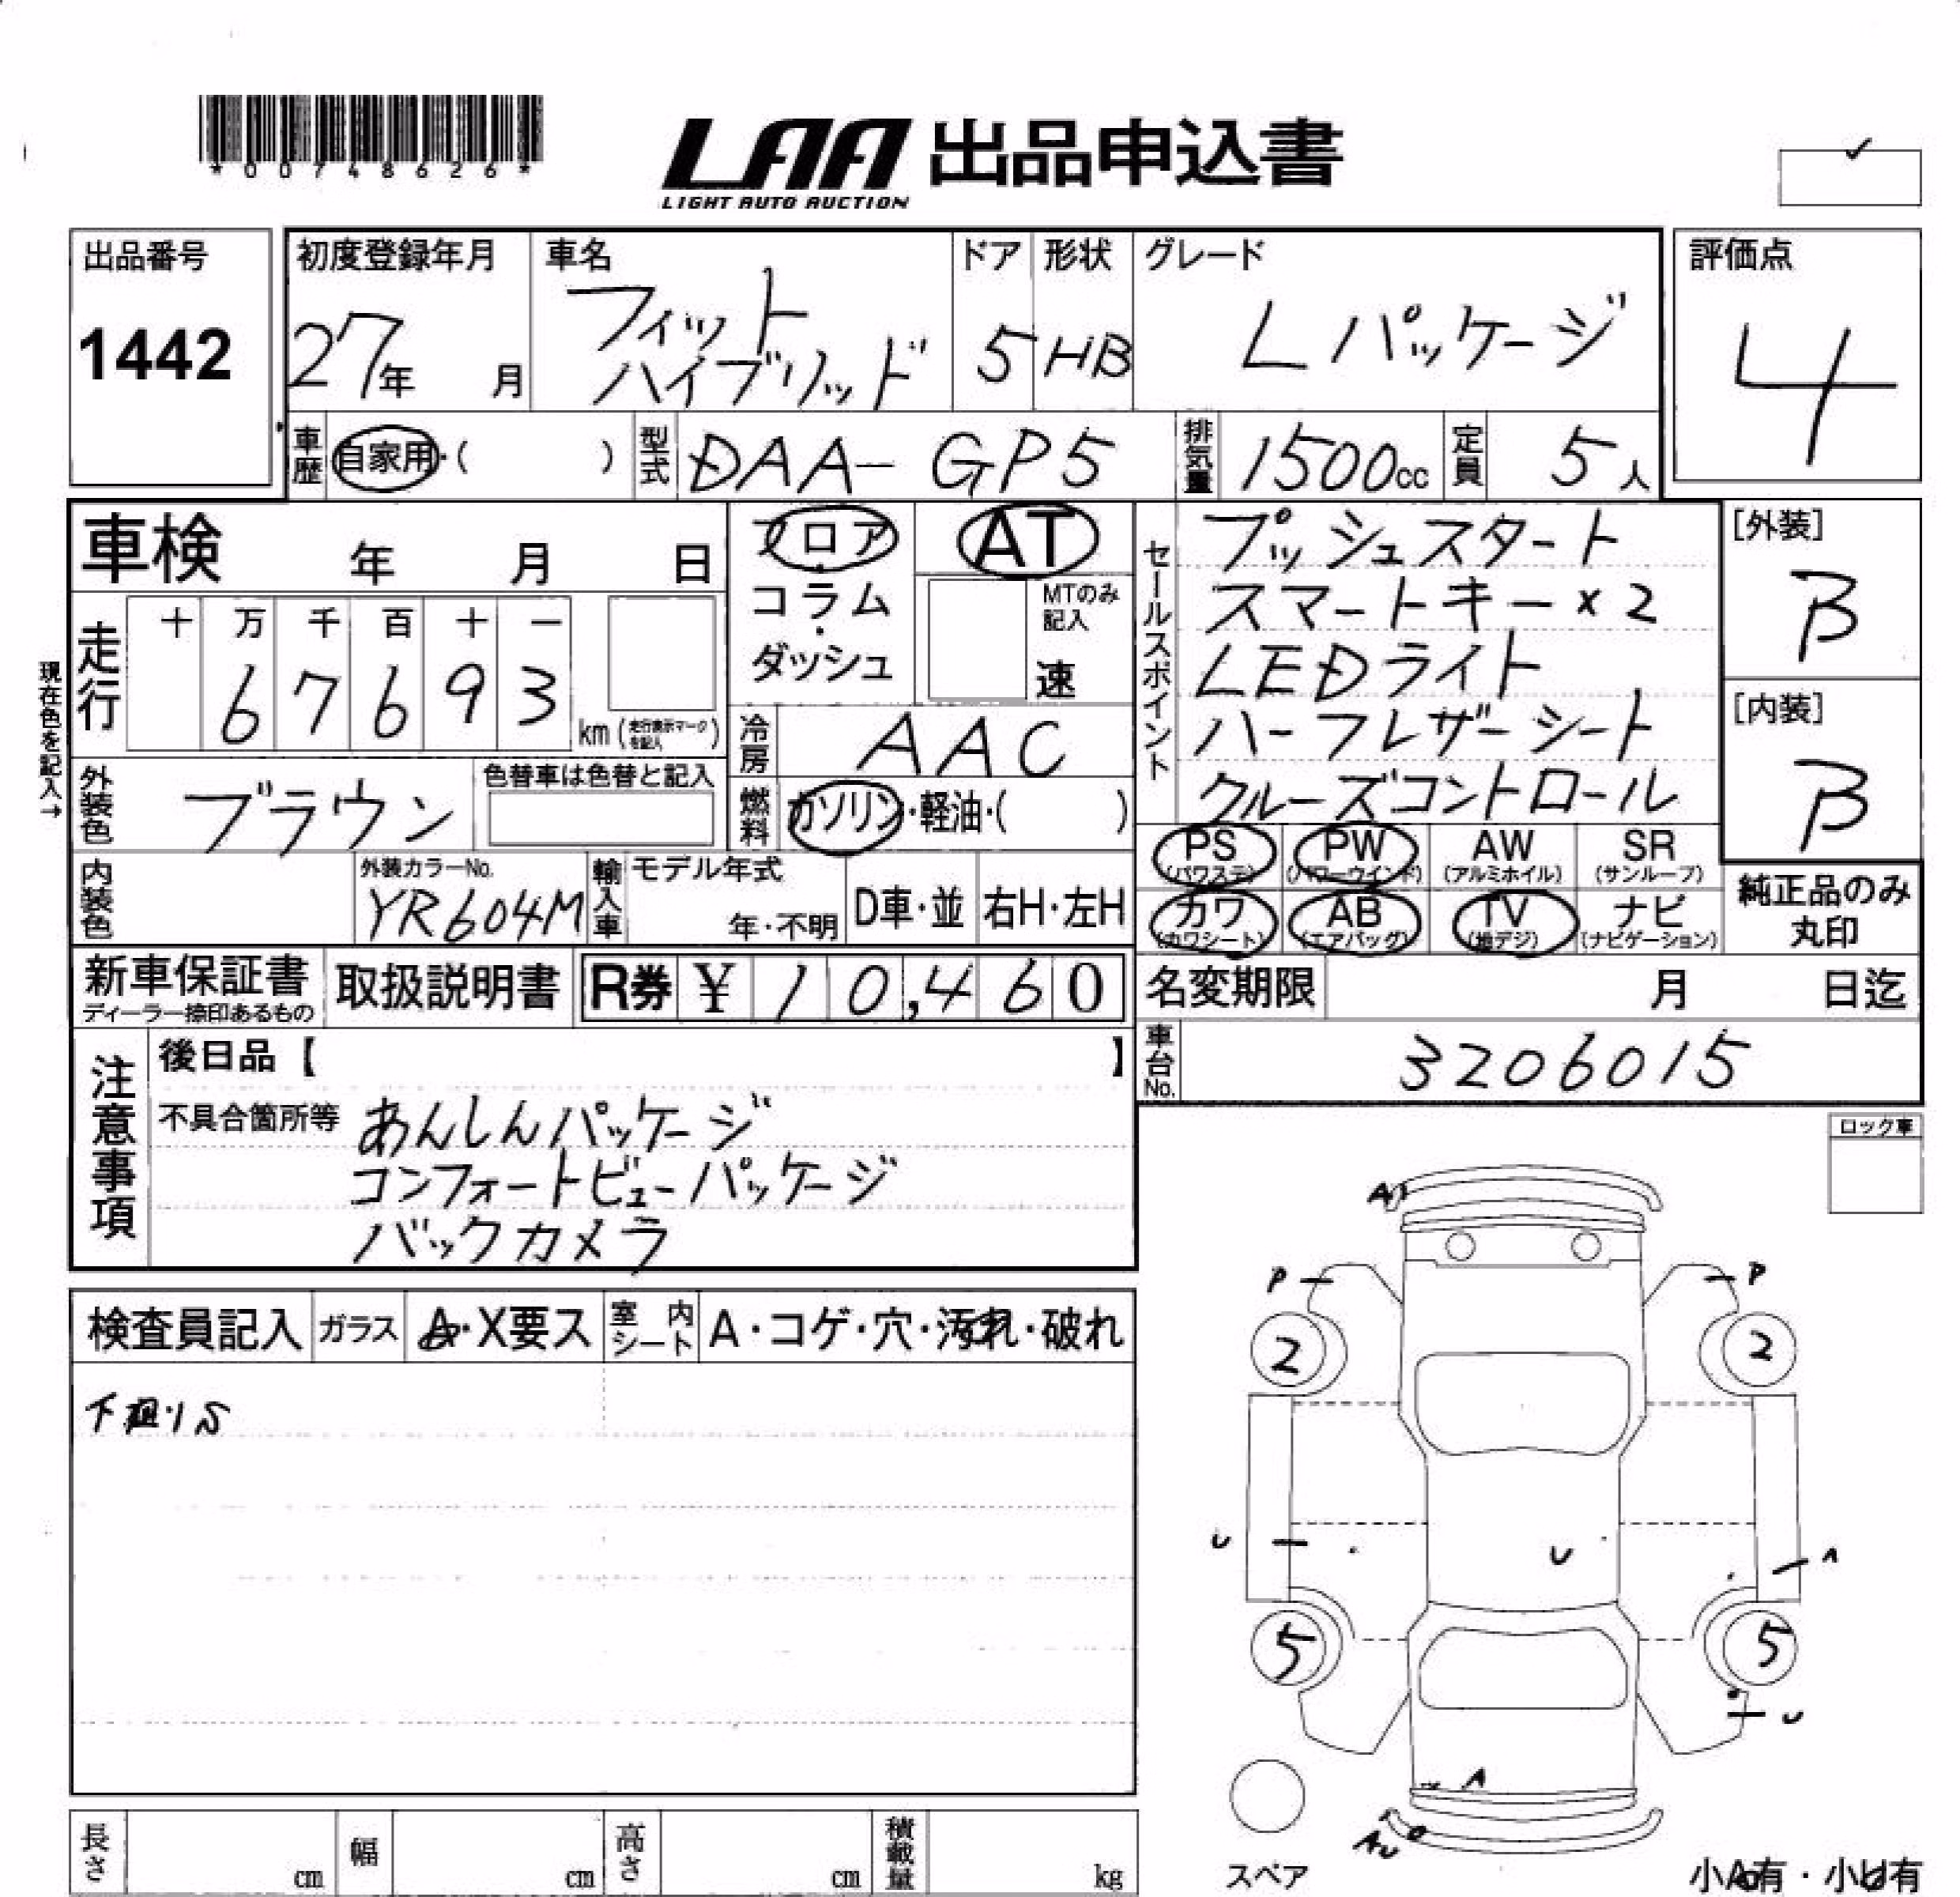 *00748626*
LAA 出品申込書
LIGHT AUTO AUCTION
出品番号
1442
初度登録年月
27年 月
車名
フィット
ハイブリッド
ドア
5
形状
HB
グレード
Lパッケージ
評価点
4
車歴
自家用・( )
型式
DAA-GP5
排気量
1500cc
定員
5人
車検 年 月 日
現在色を記入→
走行
十 万 千 百 十 一
6 7 6 9 3
km(走行表示マークを記入)
フロア・コラム・ダッシュ
AT
MTのみ記入
速
冷房
AAC
燃料
ガソリン・軽油・( )
セールスポイント
プッシュスタート
スマートキー×2
LEDライト
ハーフレザーシート
クルーズコントロール
[外装]
B
[内装]
B
外装色
ブラウン
色替車は色替と記入
内装色
外装カラーNo.
YR604M
輸入車
モデル年式
年・不明
D車・並
右H・左H
PS
(パワステ)
PW
(パワーウインド)
AW
(アルミホイル)
SR
(サンルーフ)
カワ
(カワシート)
AB
(エアバッグ)
TV
(地デジ)
ナビ
(ナビゲーション)
純正品のみ
丸印
新車保証書
ディーラー捺印あるもの
取扱説明書
R券 ¥10,460
名変期限 月 日迄
車台No.
3206015
注意事項
後日品【 】
不具合箇所等 あんしんパッケージ
コンフォートビューパッケージ
バックカメラ
ロック車
検査員記入
ガラス
A・X要ス
室内シート
A・コゲ・穴・汚れ・破れ
A
P
P
2
2
U
U
A
5
5
U
A
AU
スペア
小A有・小U有
長さ cm
幅 cm
高さ cm
積載量 kg